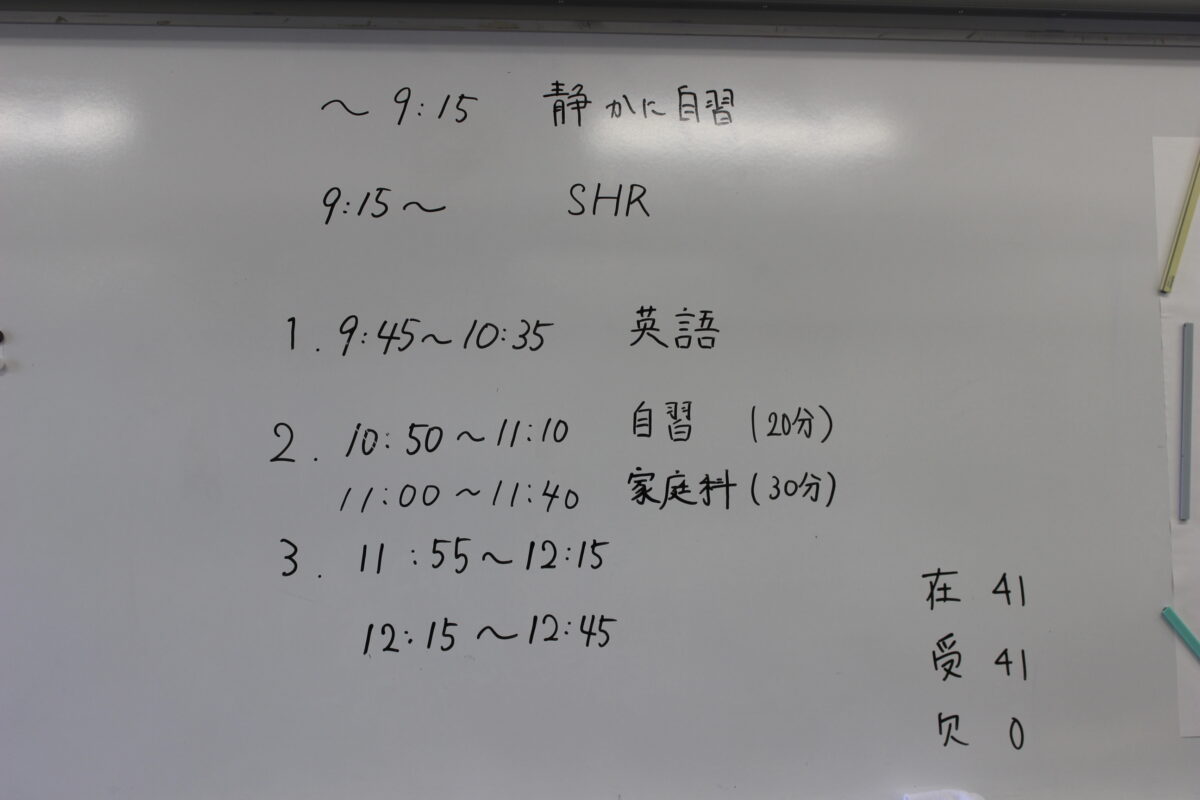 ～ 9:15 静かに自習
9:15～ SHR
1. 9:45～10:35 英語
2. 10:50～11:10 自習 (20分)
11:00～11:40 家庭科 (30分)
3. 11:55～12:15
12:15～12:45
在 41
受 41
欠 0